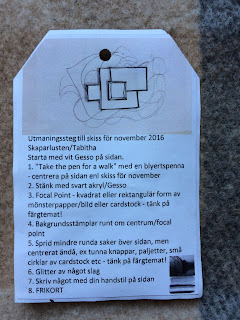 Utmaningssteg till skiss för november 2016
Skaparlusten/Tabitha
Starta med vit Gesso på sidan.
1. "Take the pen for a walk" med en blyertspenna
- centrera på sidan enl skiss för november
2. Stänk med svart akryl/Gesso
3. Focal Point - kvadrat eller rektangulär form av
mönsterpapper/bild eller cardstock - tänk på
färgtemat!
4. Bakgrundsstämplar runt om centrum/focal
point
5. Sprid mindre runda saker över sidan, men
centrerat ändå, ex tunna knappar, paljetter, små
cirklar av cardstock etc - tänk på färgtemat!
6. Glitter av något slag
7. Skriv något med din handstil på sidan
8. FRIKORT